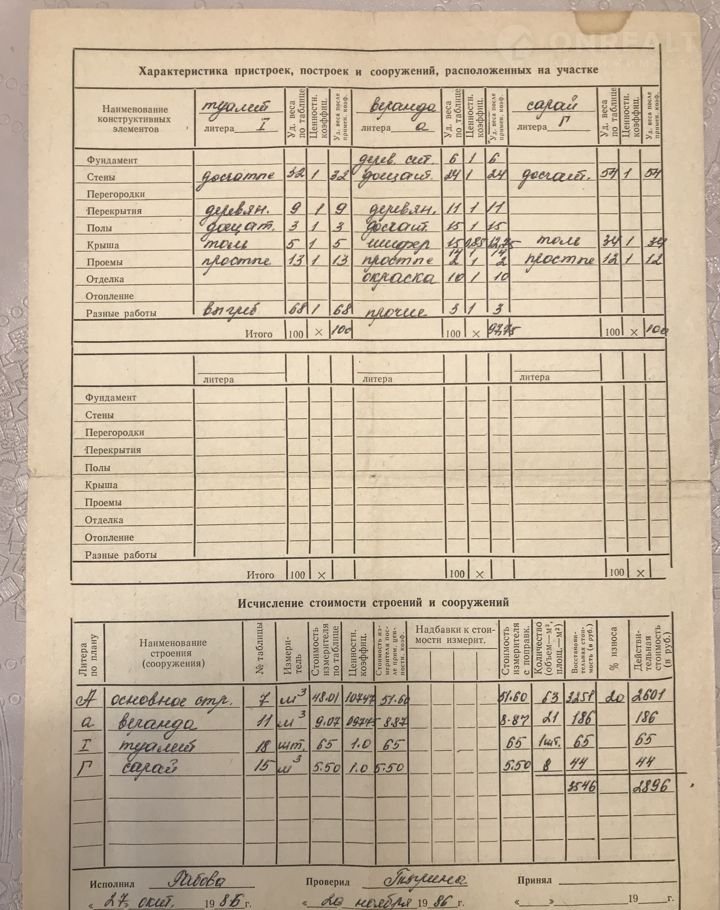 ONREALT
Характеристика пристроек, построек и сооружений, расположенных на участке
Наименование конструктивных элементов туалет литера I Уд. веса по таблице Ценности. коэффиц. Уд. веса после примен. коэф. веранда литера а Уд. веса по таблице Ценности. коэффиц. Уд. веса после примен. коэф. сарай литера Г Уд. веса по таблице Ценности. коэффиц. Уд. веса после примен. коэф.
Фундамент 6 1 6
Стены 32 1 32 дощат. 24 1 24 дощат. 54 1 54
Перегородки
Перекрытия деревян. 9 1 9 деревян. 11 1 11
Полы дощат. 3 1 3 дощат 15 1 15
Крыша толь 5 1 5 шифер 15 0.85 12,75 толь 34 1 34
Проемы простые 13 1 13 простые 1 простые 12 1 12
Отделка окраска 10 1 10
Отопление
Разные работы выгреб 68 1 68 прочие 3 1 3
Итого 100 × 100 100 × 97,75 100 × 100
литера литера литера
Фундамент
Стены
Перегородки
Перекрытия
Полы
Крыша
Проемы
Отделка
Отопление
Разные работы
Итого 100 × 100 × 100 ×
Исчисление стоимости строений и сооружений
Литера по плану Наименование строения (сооружения) № таблицы Измеритель Стоимость измерителя по таблице Ценности. коэффиц. Стоимость измерителя после прим. ценности. коэф. Надбавки к стоимости измерит. Стоимость измерителя с поправк. Количество (объем—м³, площ.—м²) Восстановительная стоимость (в руб.) % износа Действительная стоимость (в руб.)
А основное стр. 7 м³ 48.01 1.0747 51.60 51.60 63 3251 20 2601
а веранда 11 м³ 9.07 0.9775 8.87 8.87 21 186 186
I туалет 18 шт. 65 1.0 65 65 1шт. 65 65
Г сарай 15 м³ 5.50 1.0 5.50 5.50 8 44 44
3546 2896
Исполнил Проверил Принял
« 27 » окт. 1986 г. « 20 » ноября 1986 г. « » 19 г.